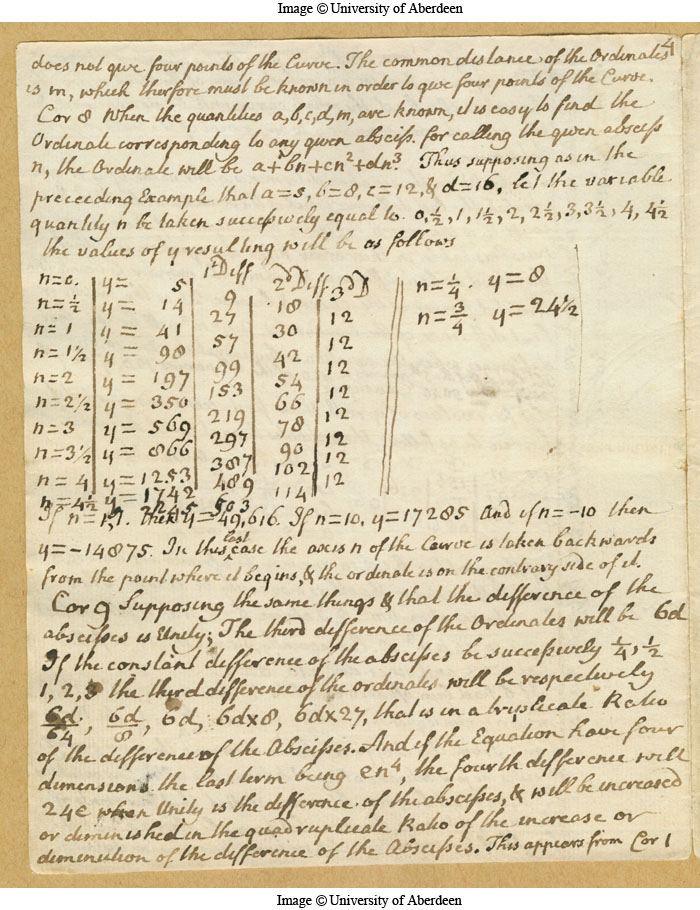 Image © University of Aberdeen
4
does not give four points of the Curve. The common distance of the Ordinates
is m, which therfore must be known in order to give four points of the Curve.
Cor 8 When the quantities a,b,c,d,m, are known, it is easy to find the
Ordinate corresponding to any given absciss. for calling the given absciss
n, the Ordinate will be a+bn+cn²+dn³. Thus supposing as in the
preceeding Example that a=5, b=8, c=12, & d=16, let the variable
quantity n be taken successively equal to 0, ½, 1, 1½, 2, 2½, 3, 3½, 4, 4½
the values of y resulting will be as follows
1st Diff 2d Diff 3d D
n=0. y= 5
9
n=½ y= 14 18
27 12
n=1 y= 41 30
57 12
n=1½ y= 98 42
99 12
n=2 y= 197 54
153 12
n=2½ y= 350 66
219 12
n=3 y= 569 78
297 12
n=3½ y= 866 90
387 12
n=4 y= 1253 102
489 12
n=4½ y= 1742 114
503
n=¼. y=8
n=¾. y=24½
If n=1,1. then y=49,616. If n=10, y=17285 And if n=-10 then
y=-14875. In this last case the axis n of the Curve is taken backwards
from the point where it begins, & the ordinate is on the contrary side of it.
Cor 9 Supposing the same things & that the difference of the
abscisses is Unity; The third difference of the Ordinates will be 6d
If the constant difference of the abscisses be successively ¼, ½
1, 2, 3 the third difference of the ordinates will be respectively
6d/64, 6d/8, 6d, 6d×8, 6d×27, that is in a triplicate Ratio
of the difference of the Abscisses. And if the Equation have four
dimensions the last term being en⁴, the fourth difference will
24e when Unity is the difference of the abscisses, & will be increased
or diminished in the quadruplicate Ratio of the increase or
diminution of the difference of the Abscisses. This appears from Cor 1
Image © University of Aberdeen